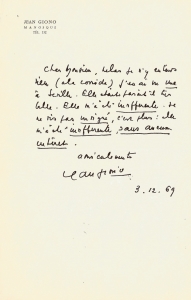 JEAN GIONO
MANOSQUE
TÉL. 131
Cher Monsieur, hélas je n'y entends
rien (à la corrida) j'en ai vu une
à Séville. Elle était paraît-il très
belle. Elle m'a été indifférente. Je
ne suis pas intrigué, c'est plus : elle
m'a été indifférente, sans aucun
intérêt.
amicalement
Jean Giono
3.12.69